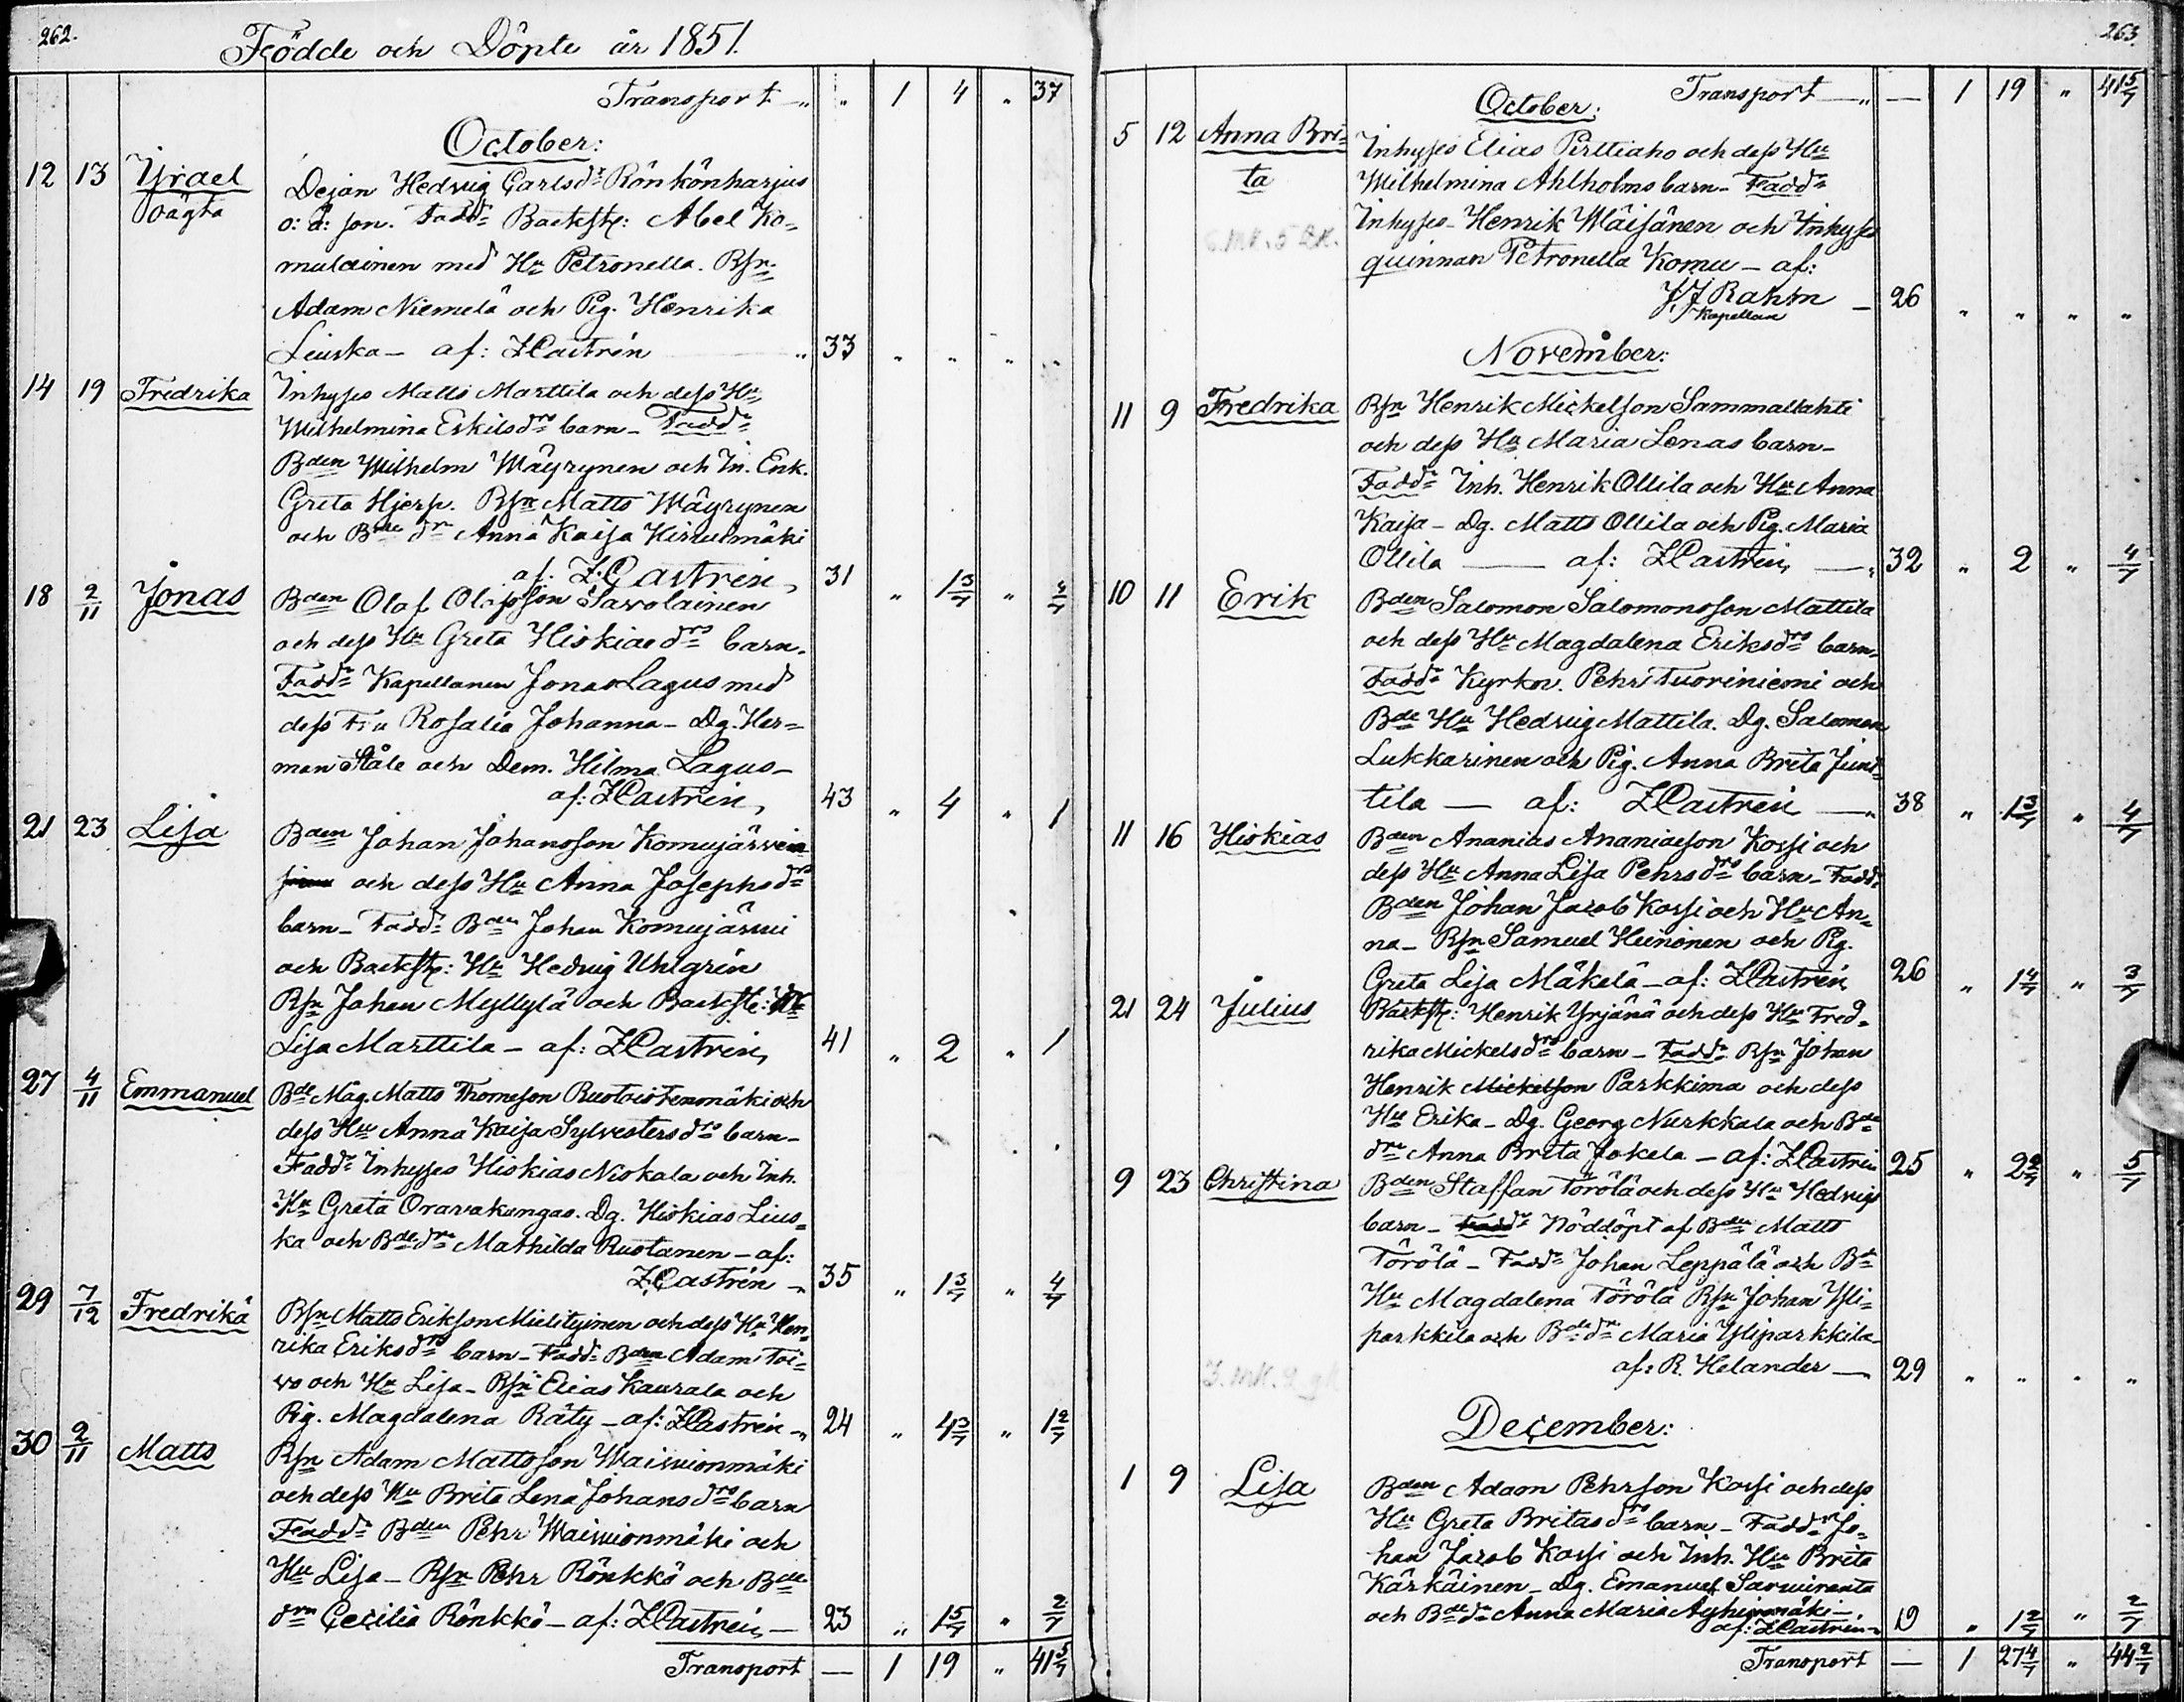 262.
Födde och Döpte år 1851.
Transport — „ „ 1 4 „ 37
October:
12 13 Israel Dejan Hedvig Carlsdr Rönkönharjus
oägta o: ä: son. Fadd: Backst: Abel Ko-
mulainen med Hu Petronella. Rsn
Adam Niemelä och Pig. Henrika
Liuska — af: ZCastrén „ 33 „ „ „ „
14 19 Fredrika Inhyses Matts Marttila och dess Hu
Wilhelmina Eskilsdrs barn — Fadd:
Bden Wilhelm Mäyrynen och In. Enk.
Greta Hjerp. Rsn Matts Mäyrynen
och Bde dr Anna Kaisa Hirsimäki
af: Z. Castrén, 31 „ 1 3/7 „ 4/7
18 2/11 Jonas Bden Olof Olofsson Savolainen
och dess Hu Greta Hiskiaedrs barn.
Fadd: Kapellanen Jonas Lagus med
dess Fru Rosalia Johanna — Dg. Her-
man Ståle och Dem. Hilma Lagus —
af: ZCastrén, 43 „ 4 „ 1
21 23 Lisa Bden Johan Johansson Komujärvein
och dess Hu Anna Josephsdrs
barn — Fadd: Bden Johan Komujärwi
och Backst: Hu Hedvig Uhlgrén
Rsn Johan Myllylä och Backst: Hu
Lisa Marttila — af: ZCastrén, 41 „ 2 „ 1
27 4/11 Emmanuel Bde Måg. Matts Thomsson Ruotoistenmäki och
dess Hu Anna Kaisa Sylvestersdrs barn —
Fadd: Inhyses Hiskias Niskala och Inh.
Hu Greta Oravakangas. Dg. Hiskias Lius-
ka och Bde dr Mathilda Ruotanen — af:
ZCastrén — 35 „ 1 3/7 „ 4/7
29 7/12 Fredrika Rsn Matts Eriksson Mielityinen och dess Hu Hen-
rika Eriksdrs barn — Fadd: Bden Adam Toi-
vo och Hu Lisa — Rsn Elias Kaurala och
Pig. Magdalena Räty — af: ZCastrén — „ 24 „ 4 3/7 „ 1 2/7
30 2/11 Matts Rsn Adam Mattsson Waiwionmäki
och dess Hu Brita Lena Johansdrs barn
Fadd: Bden Pehr Waiwionmäki och
Hu Lisa — Rsn Pehr Rönkkö och Bde
drn Cecilia Rönkkö — af: ZCastrén, — 23 „ 1 5/7 „ 2/7
Transport — 1 19 „ 41 5/7
263.
Transport — „ — 1 19 „ 41 5/7
October:
5 12 Anna Bri- Inhyses Elias Pirttiaho och dess Hu
ta Wilhelmina Ahlholms barn — Fadd:
Inhyses — Henrik Wäisänen och Inhyses
quinnan Petronella Komu — af:
J J Rahm — 26 „ „ „ „
Kapellan
November:
11 9 Fredrika Rsn Henrik Mickelson Sammallahti
och dess Hu Maria Lenas barn —
Fadd: Inh. Henrik Ollila och Hu Anna
Kaisa — Dg. Matts Ollila och Pig. Maria
Ollila — af: ZCastrén, — „ 32 „ 2 „ 4/7
10 11 Erik Bden Salomon Salomonsson Mattila
och dess Hu Magdalena Eriksdrs barn —
Fadd: Kyrkov. Pehr Tuoriniemi och
Bde Hu Hedvig Mattila. Dg. Salomon
Lukkarinen och Pig. Anna Brita Junt-
tila — af: ZCastrén — „ 38 „ 1 3/7 „ 4/7
11 16 Hiskias Bden Ananias Ananiasson Kossi och
dess Hu Anna Lisa Pehrsdrs barn — Fadd:
Bden Johan Jacob Kossi och Hu An-
na — Rsn Samuel Heinonen och Pig.
Greta Lisa Mäkelä — af: ZCastrén 26 „ 1 4/7 „ 3/7
21 24 Julius Backst: Henrik Yrjänä och dess Hu Fred-
rika Mickelsdrs barn — Fadd: Rsn Johan
Henrik Mickelson Parkkima och dess
Hu Erika — Dg. Georg Nurkkala och Bde
drn Anna Brita Jokela — af: ZCastrén 25 „ 2 2/7 „ 5/7
9 23 Christina Bden Staffan Törölä och dess Hu Hedvigs
barn — Fadd: Nöddöpt af Bden Matts
Törölä — Fadd: Johan Leppälä och Bde
Hu Magdalena Törölä Rsn Johan Yli-
parkkila och Bde dr Maria Yliparkkila —
af: R. Helander — 29 „ „ „ „
December:
1 9 Lisa Bden Adam Pehrson Kossi och dess
Hu Greta Britasdrs barn — Fadd: Jo-
han Jacob Kossi och Inh. Hu Brita
Kärkäinen — Dg. Emanuel Sarwiranta
och Bde dr Anna Maria Ayhynmäki —
af: ZCastrén — 19 „ 1 2/7 „ 2/7
Transport — 1 27 4/7 „ 44 2/7